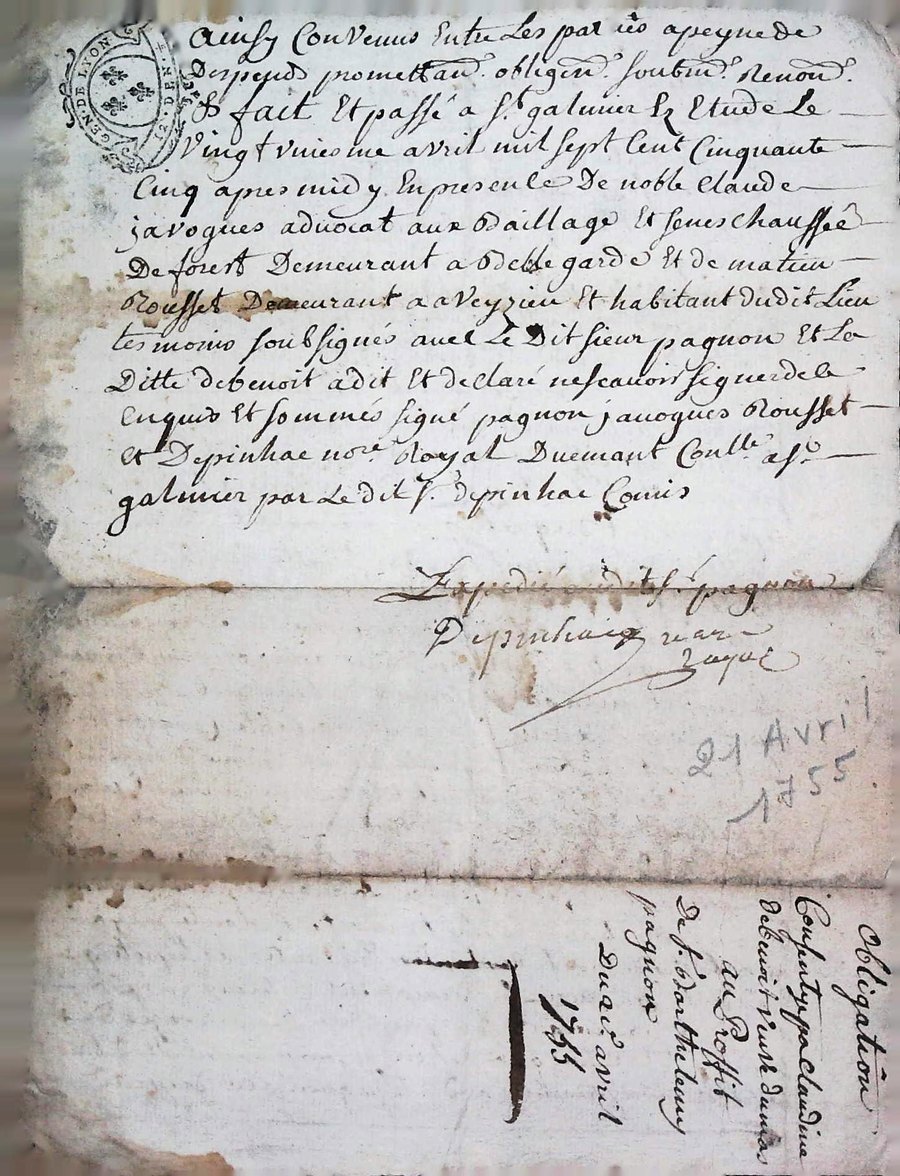 GEN. DE LYON
Ainsy Convenus Entre Les parties apeyne de
Despends promettant. obligent. soubmt. Renont.
& fait Et passé a St. galmier Ez Etude Le
Vingt uniesme avril mil sept Cent Cinquante
Cinq apres midy En presence De noble Claude
javogues advocat aux Baillage Et seneschaussée
De forest Demeurant a Bellegarde Et de matieu
Rousset Demeurant a aveyzieu Et habitant dudit Lieu
tesmoins soubsignés avec Le Dit sieur pagnon Et La
Ditte debenoit a dit Et declaré ne scavoir signer de ce
Enquis Et sommés signé pagnon javogues Rousset
et Depinhac nore. Royal Duement Conllé. a St.
galmier par Le dit Sr. depinhac Comis
Expedié audit Sr. pagnon
Depinhac
royal
21 Avril
1755
obligation
Consentye pa Claudine
debenoit veuve dumas
au Proffit
De Sr. Barthelemy
pagnon
Du 21e avril
1755